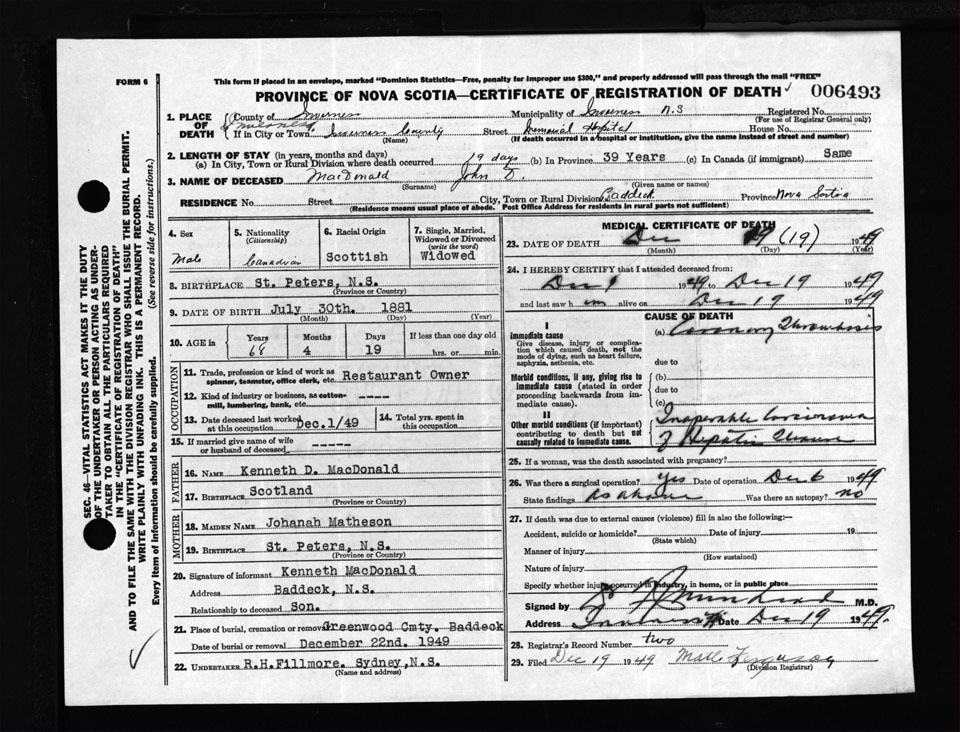 FORM 6
This form if placed in an envelope, marked "Dominion Statistics—Free, penalty for improper use $300," and properly addressed will pass through the mail "FREE"
PROVINCE OF NOVA SCOTIA—CERTIFICATE OF REGISTRATION OF DEATH 006493
SEC. 46—VITAL STATISTICS ACT MAKES IT THE DUTY
OF THE UNDERTAKER OR PERSON ACTING AS UNDER-
TAKER TO OBTAIN ALL THE PARTICULARS REQUIRED
IN THE "CERTIFICATE OF REGISTRATION OF DEATH"
AND TO FILE THE SAME WITH THE DIVISION REGISTRAR WHO SHALL ISSUE THE BURIAL PERMIT.
WRITE PLAINLY WITH UNFADING INK. THIS IS A PERMANENT RECORD.
Every item of information should be carefully supplied. (See reverse side for instructions.)
1. PLACE OF DEATH
County of Inverness Municipality of Inverness N.S Registered No.
(For use of Registrar General only)
If in City or Town Inverness County Street Memorial Hospital House No.
(Name) (If death occurred in a hospital or institution, give the name instead of street and number)
2. LENGTH OF STAY (in years, months and days)
(a) In City, Town or Rural Division where death occurred 19 days (b) In Province 39 Years (c) In Canada (if immigrant) Same
3. NAME OF DECEASED MacDonald John
(Surname) (Given name or names)
RESIDENCE No. Street City, Town or Rural Division Baddeck Province Nova Scotia
(Residence means usual place of abode. Post Office Address for residents in rural parts not sufficient)
4. Sex
Male
5. Nationality
(Citizenship)
Canadian
6. Racial Origin
Scottish
7. Single, Married,
Widowed or Divorced
(write the word)
Widowed
8. BIRTHPLACE St. Peters, N.S.
(Province or Country)
9. DATE OF BIRTH July 30th. 1881
(Month) (Day) (Year)
10. AGE in
Years Months Days If less than one day old
68 4 19 hrs. or min.
OCCUPATION
11. Trade, profession or kind of work as
spinner, teamster, office clerk, etc. Restaurant Owner
12. Kind of industry or business, as cotton-
mill, lumbering, bank, etc. -----
13. Date deceased last worked
at this occupation Dec.1/49
14. Total yrs. spent in
this occupation
15. If married give name of wife
or husband of deceased -----
FATHER
16. NAME Kenneth D. MacDonald
17. BIRTHPLACE Scotland
(Province or Country)
MOTHER
18. MAIDEN NAME Johanah Matheson
19. BIRTHPLACE St. Peters, N.S.
(Province or Country)
20. Signature of informant Kenneth MacDonald
Address Baddeck, N.S.
Relationship to deceased Son.
21. Place of burial, cremation or removal Greenwood Cmty. Baddeck
Date of burial or removal December 22nd. 1949
22. UNDERTAKER R.H.Fillmore. Sydney,N.S.
(Name and address)
MEDICAL CERTIFICATE OF DEATH
23. DATE OF DEATH Dec 19 (19) 1949
(Month) (Day) (Year)
24. I HEREBY CERTIFY that I attended deceased from:
Dec 1949 to Dec 19 1949
and last saw him alive on Dec 19 1949
CAUSE OF DEATH
I
Immediate cause
Give disease, injury or complica-
tion which caused death, not the
mode of dying, such as heart failure,
asphyxia, asthenia, etc.
(a) Coronary Thrombosis
due to
Morbid conditions, if any, giving rise to
immediate cause (stated in order
proceeding backwards from im-
mediate cause).
(b)
due to
(c)
II
Other morbid conditions (if important)
contributing to death but not
causally related to immediate cause.
Inoperable Carcinoma
of Hepatic Flexure
25. If a woman, was the death associated with pregnancy?
26. Was there a surgical operation? yes Date of operation Dec 6 1949
State findings as above Was there an autopsy? no
27. If death was due to external causes (violence) fill in also the following:—
Accident, suicide or homicide? Date of injury 19
(State which)
Manner of injury
(How sustained)
Nature of injury
Specify whether injury occurred in industry, in home, or in public place
Signed by M.D.
Address Inverness Date Dec 19 1949.
28. Registrar's Record Number two
29. Filed Dec 19 1949
(Division Registrar)